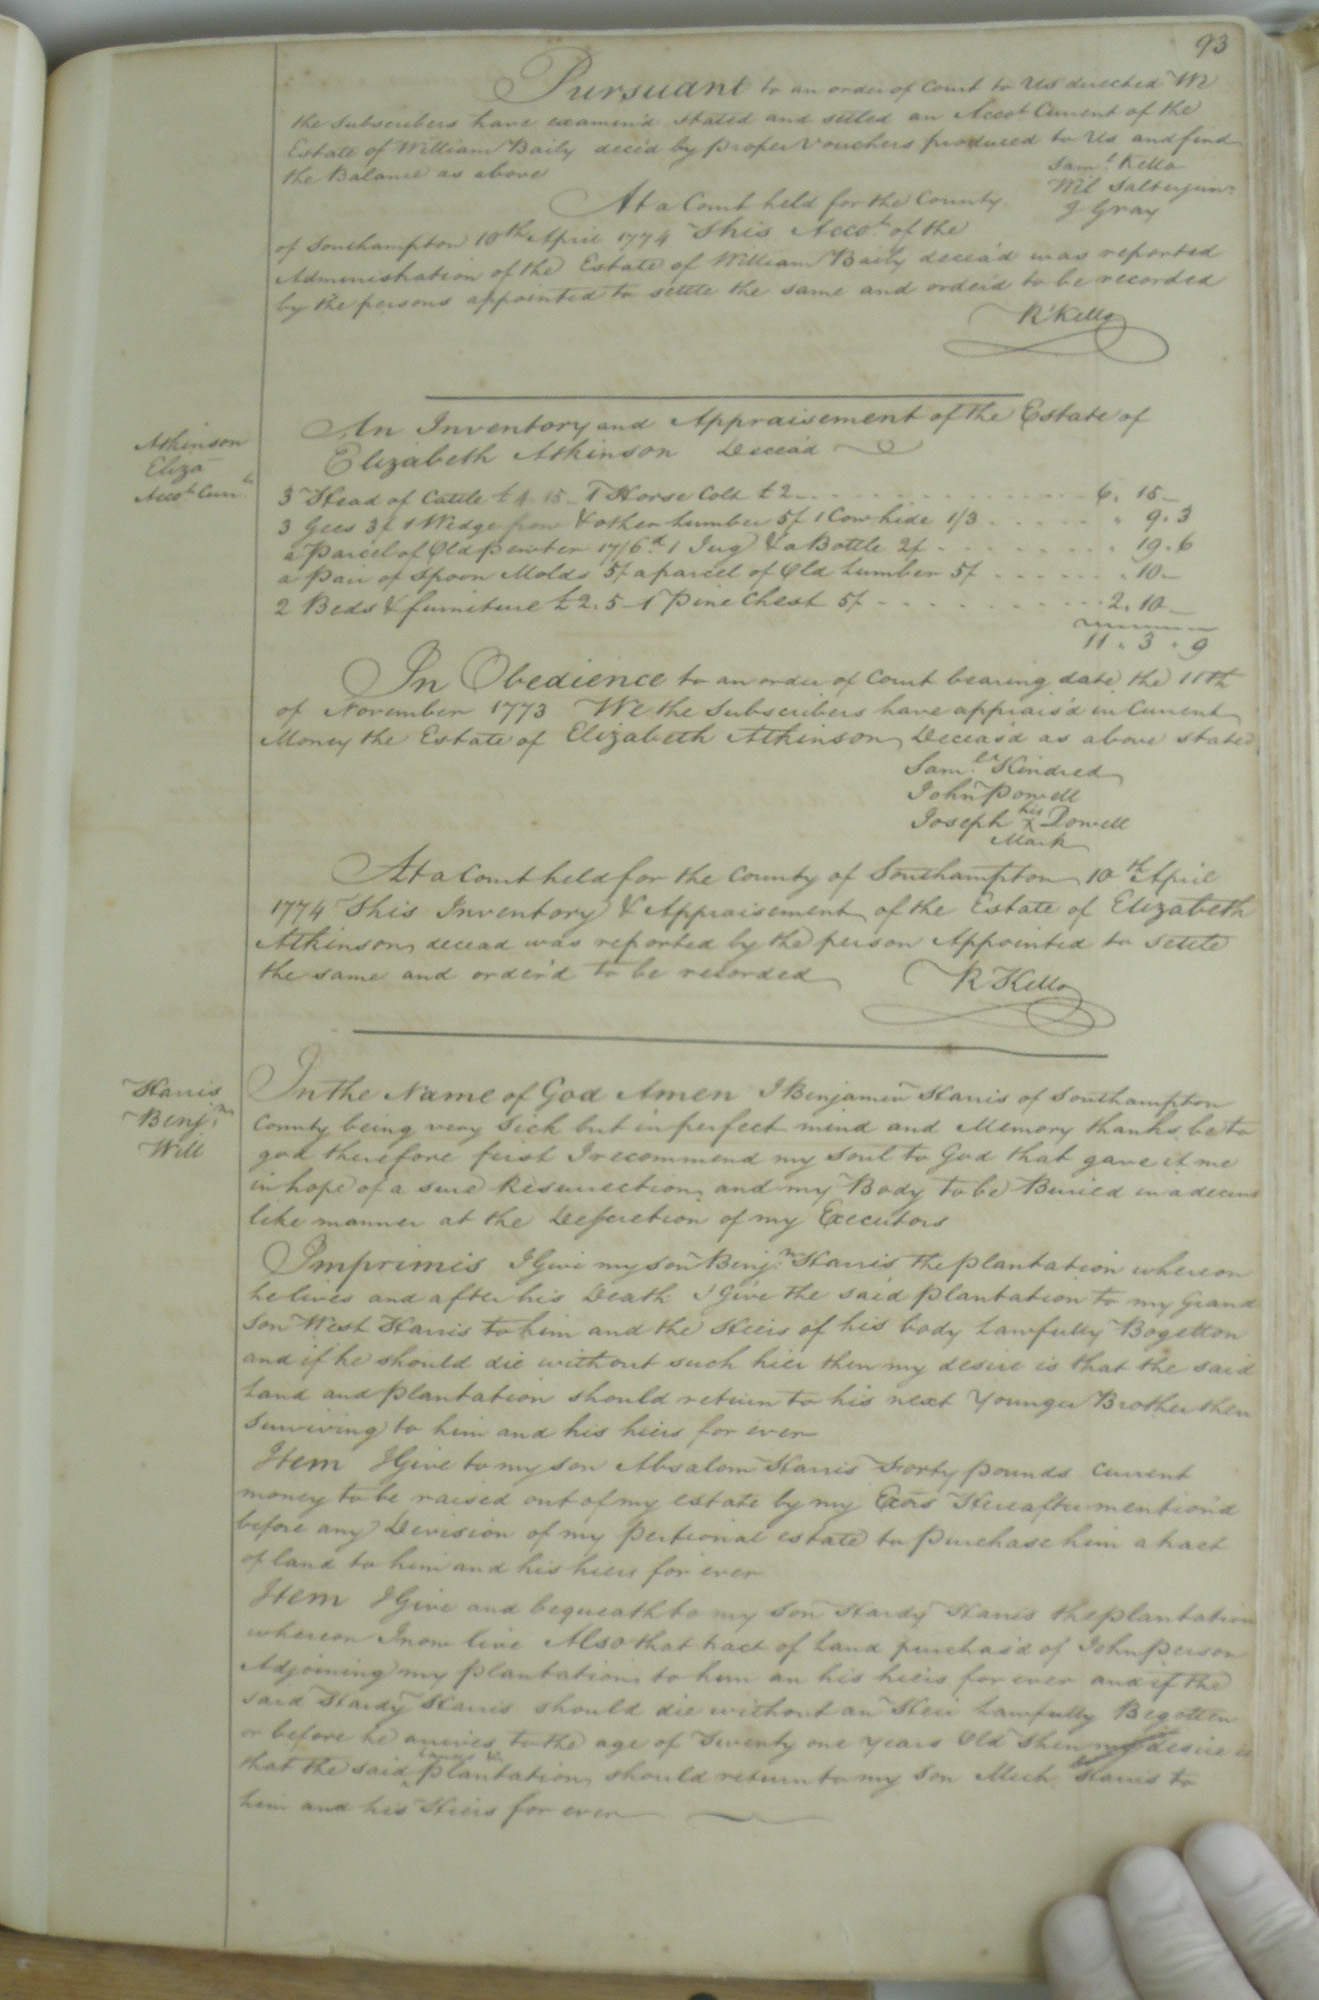 93
Pursuant to an order of Court to Us directed We
the Subscribers have examin'd stated and settled an Accot Current of the
Estate of William Baily dece'd by proper Vouchers produced to Us and find
the Balance as above
Saml. Kello
Wil Salter junr.
J Gray
At a Court held for the County
of Southampton 10th April 1774 This Accot of the
Administration of the Estate of William Baily decea'd was reported
by the persons appointed to settle the same and order'd to be recorded
R Kello
Atkinson
Eliza
Accot Curr
An Inventory and Appraisement of the Estate of
Elizabeth Atkinson Decea'd
3 Head of Cattle £4 15 – 1 Horse Colt £2 – 6. 15 –
3 Gees 3/ 1 Wedge & other Lumber 5/ 1 Cow hide 1/3 9. 3
a Parcel of Old pewter 17/6d. 1 Jug & a Bottle 2/ 19. 6
a Pair of Spoon Molds 5/ a parcel of Old Lumber 5/ 10 –
2 Beds & furniture £2. 5 – 1 Pine Chest 5/ 2. 10 –
11. 3. 9
In Obedience to an order of Court bearing date the 11th
of November 1773 We the Subscribers have apprais'd in Current
Money the Estate of Elizabeth Atkinson Deceas'd as above stated
Saml. Kindred
John Powell
Joseph his X Powell
Mark
At a Court held for the County of Southampton 10th April
1774 This Inventory & Appraisement of the Estate of Elizabeth
Atkinson decead was reported by the person Appointed to settle
the same and order'd to be recorded
R Kello
Harris
Benjn.
Will
In the Name of God Amen I Benjamin Harris of Southampton
County being very Sick but in perfect mind and Memory thanks be to
god therefore first I recommend my Soul to God that gave it me
in hope of a sure Resurrection and my Body to be Buried in a decent
like manner at the Descretion of my Executors
Imprimis I Give my Son Benjn. Harris the plantation whereon
he lives and after his Death I Give the said plantation to my Grand
Son West Harris to him and the Heirs of his body Lawfully Bogetton
and if he should die without such hier then my desire is that the said
Land and plantation should return to his next Younger Brother then
Surviving to him and his hiers for ever
Item I Give to my Son Absalom Harris Forty pounds Current
money to be raised out of my estate by my Exors Hereafter mention'd
before any Devision of my pertional estate to purchase him a tract
of land to him and his hiers for ever
Item I Give and bequeath to my Son Hardy Harris the plantation
whereon I now live Also that tract of Land purchas'd of John person
Adjoining my plantation to him an his hiers for ever and if the
said Hardy Harris should die without an Heir Lawfully Begotten
or before he arrives to the age of Twenty one years Old Then my desire is
that the said Land & plantation should return to my Son Mich. Harris to
him and his Hiers for ever